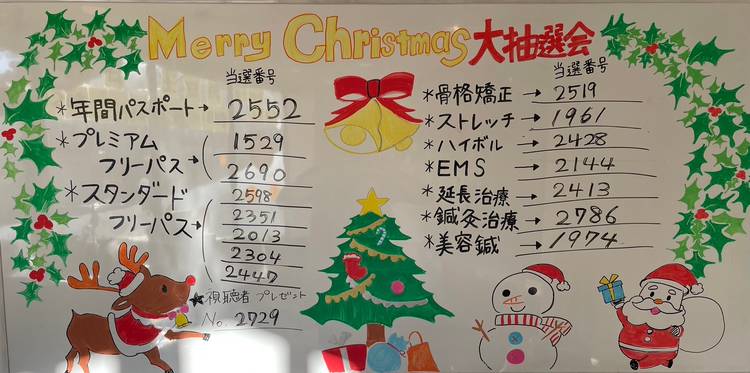 Merry Christmas 大抽選会
当選番号
*年間パスポート→ 2552
*プレミアム
フリーパス→
1529
2690
*スタンダード
フリーパス→
2598
2351
2013
2304
2447
★視聴者プレゼント
No. 2729
当選番号
*骨格矯正→ 2519
*ストレッチ→ 1961
*ハイボル→ 2428
*EMS→ 2144
*延長治療→ 2413
*鍼灸治療→ 2786
*美容鍼→ 1974